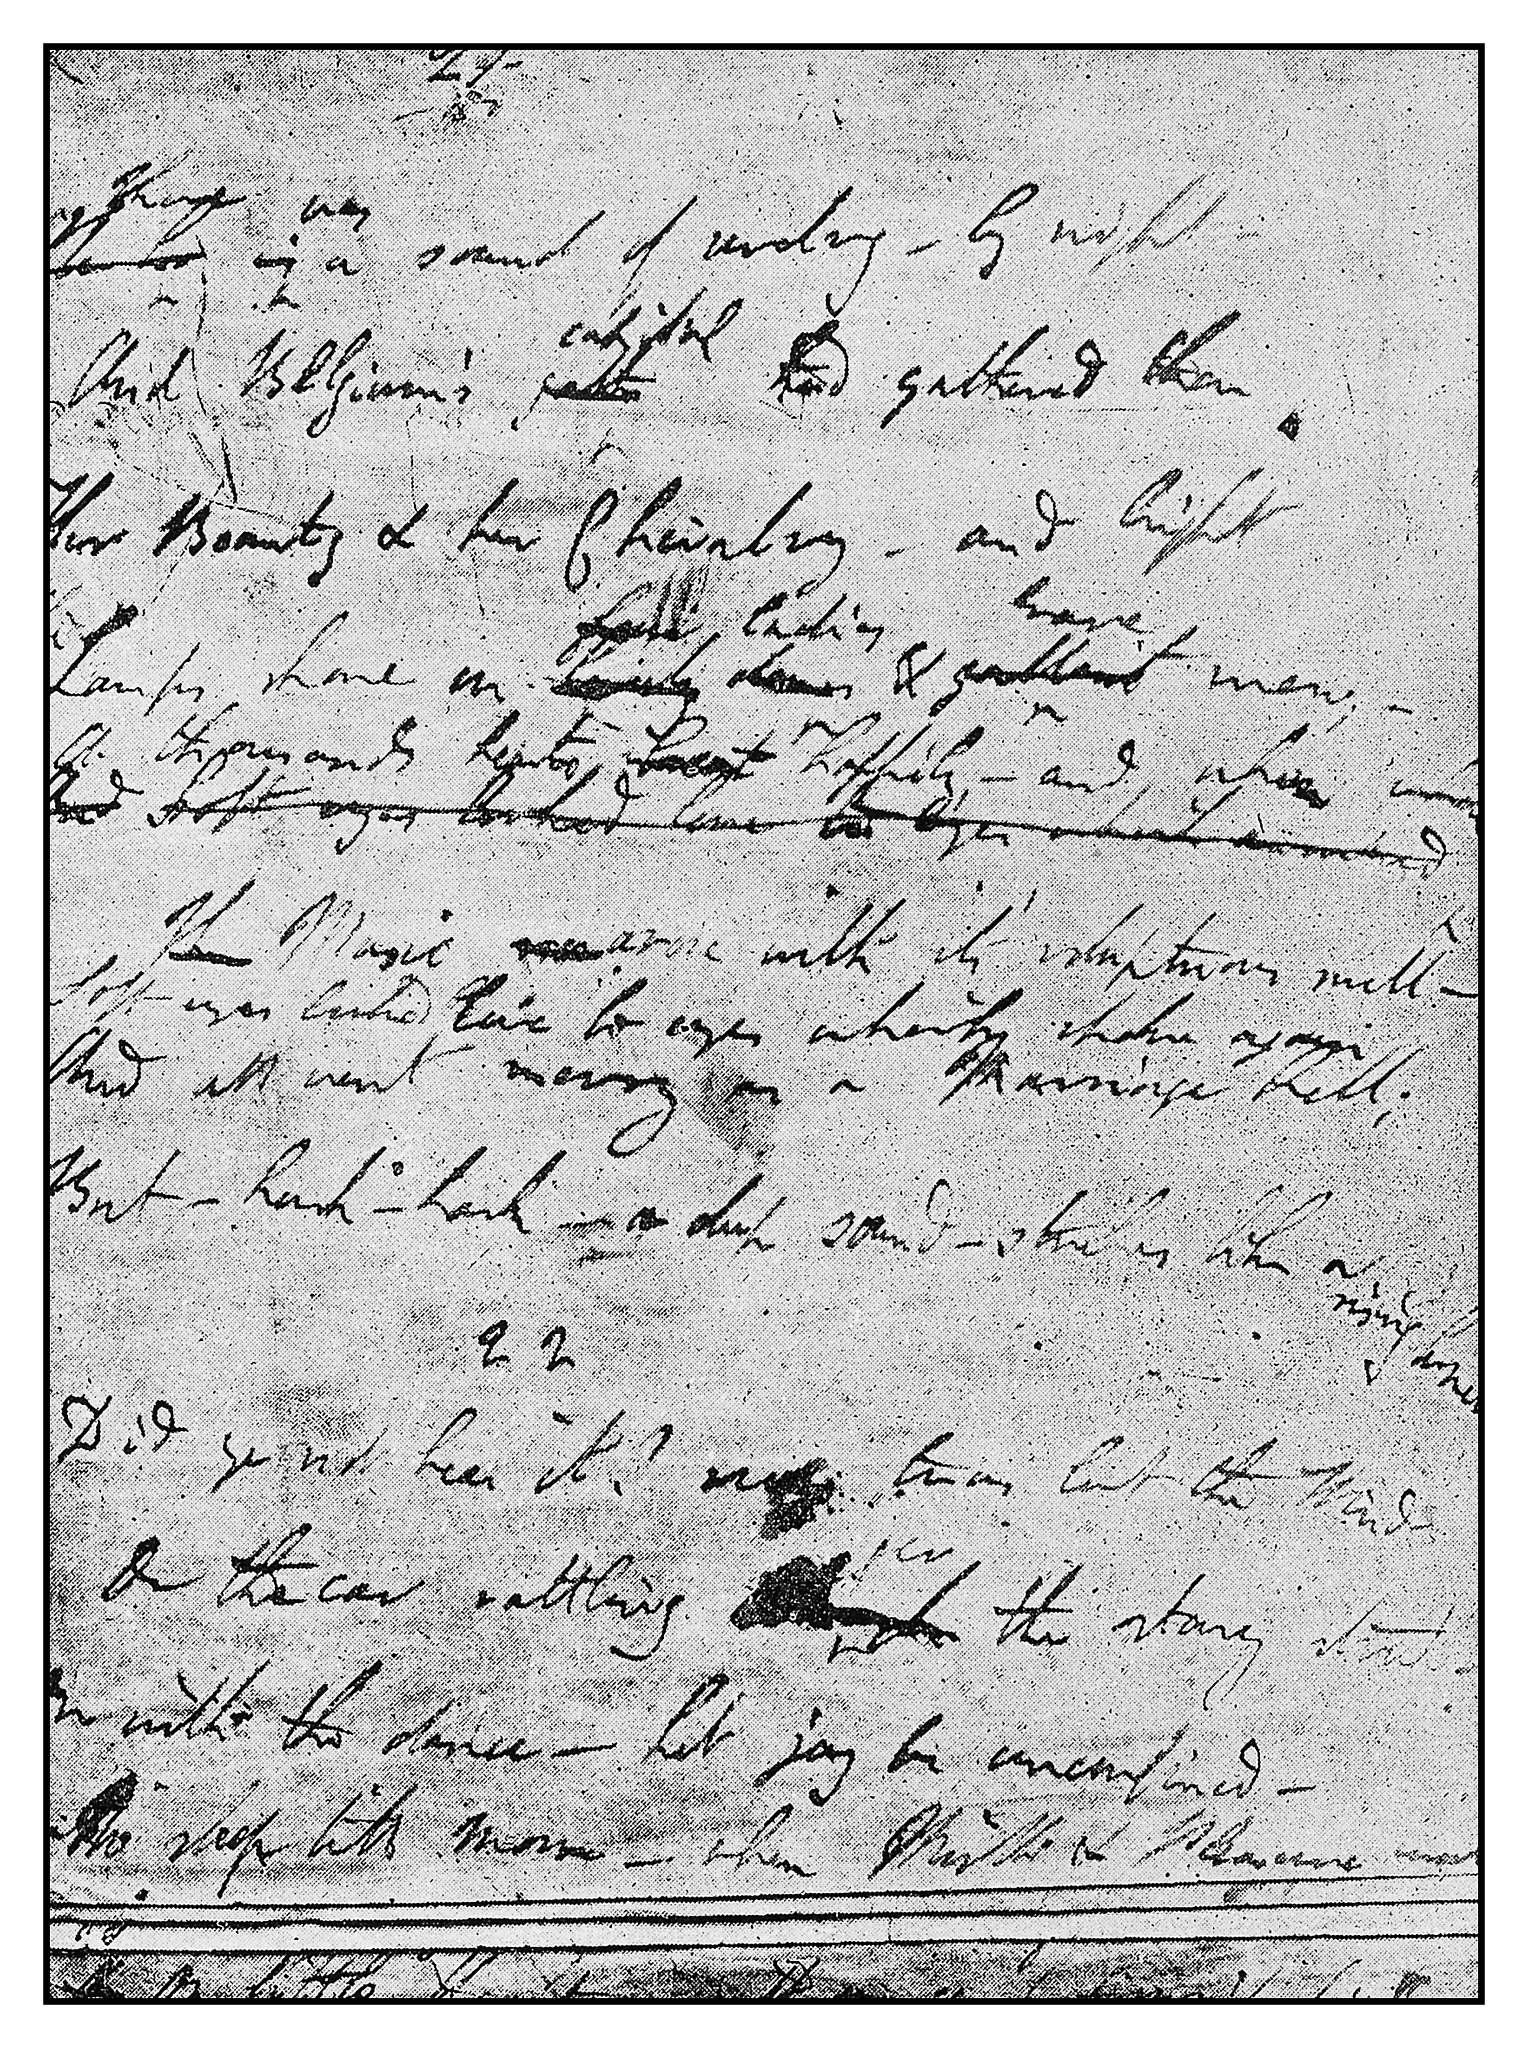 There was
is a sound of revelry – by night
capital
And Belgium's had gathered then
Her Beauty & her Chivalry – and bright
fair ladies brave
Lamps shone on lovely dames & gallant men; –
A thousand hearts beat happily – and when
And soft eyes looked love to eyes which
The Music arose with its voluptuous swell –
Soft eyes looked love to eyes which spake again
And all went merry as a Marriage bell;
But – hush – hark – a deep sound – strikes like a
rising
22
Did ye not hear it? twas but the Wind
Or the car rattling the stony street
On with the dance – let joy be unconfined –
No sleep till morn – when Youth & Pleasure meet